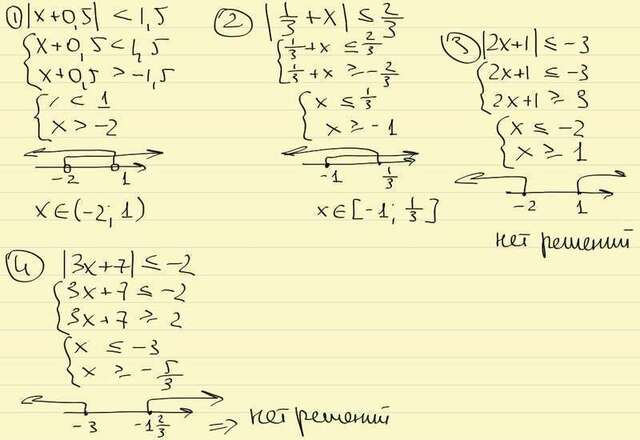 1) |x+0,5| < 1,5
{ x+0,5 < 1,5
x+0,5 > -1,5
{ x < 1
x > -2
-2 1
x∈(-2; 1)
2) |1/3 + x| ≤ 2/3
{ 1/3 + x ≤ 2/3
1/3 + x ≥ -2/3
{ x ≤ 1/3
x ≥ -1
-1 1/3
x∈[-1; 1/3]
3) |2x+1| ≤ -3
{ 2x+1 ≤ -3
2x+1 ≥ 3
{ x ≤ -2
x ≥ 1
-2 1
нет решений
4) |3x+7| ≤ -2
{ 3x+7 ≤ -2
3x+7 ≥ 2
{ x ≤ -3
x ≥ -5/3
-3 -1 2/3 => нет решений